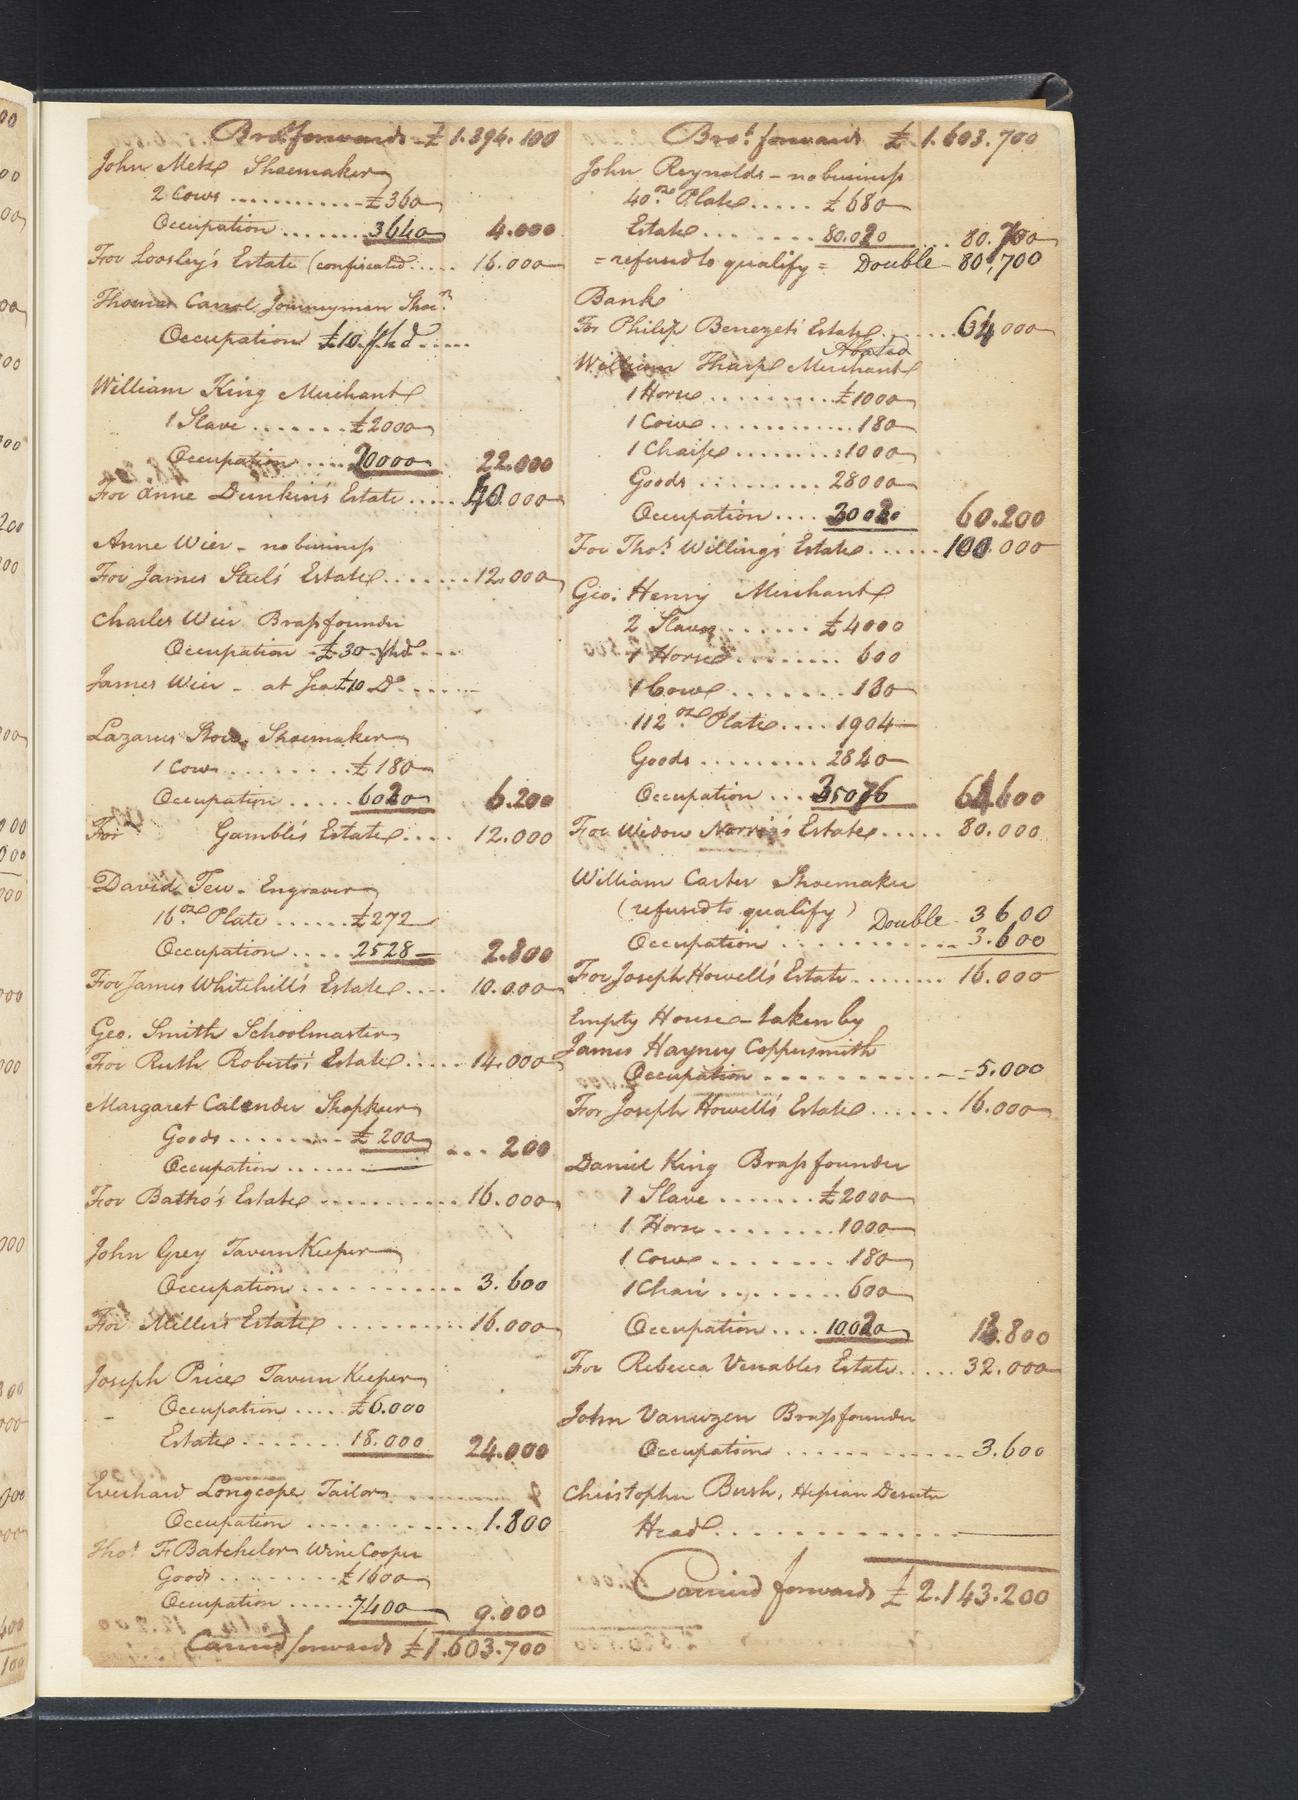 Brot. forwards £ 1.394.100
John Metz Shoemaker
2 Cows ............ £360
Occupation ........ 3640 4.000
For Loosley's Estate (confiscated ..... 16.000
Thomas Carrol Journeyman Shoer.
Occupation £10. p hd .....
William King Merchant
1 Slave ....... £2000
Occupation .... 20000 22.000
For Anne Dunkin's Estate ..... 40.000
Anne Wier - no business
For James Steel's Estate ....... 12.000
Charles Wier Brassfounder
Occupation £30 p hd ....
James Wier - at Sea £10 Do. ......
Lazarus Shoemaker
1 Cow ........ £180
Occupation ..... 6020 6.200
For Gamble's Estate .... 12.000
David Tew - Engraver
16 oz. Plate ...... £272
Occupation ..... 2528 2.800
For James Whitehill's Estate .... 10.000
Geo. Smith Schoolmaster
For Ruth Roberts's Estate ..... 14.000
Margaret Calender Shopkeeper
Goods ........ £200 ... 200
Occupation ......
For Batho's Estate .......... 16.000
John Grey Tavern Keeper
Occupation ........... 3.600
For Miller's Estate .......... 16.000
Joseph Price Tavern Keeper
- Occupation ..... £6.000
Estate ....... 18.000 24.000
Everhard Longcope Tailor
Occupation ........... 1.800
Thos. F Batchelor Wine Cooper
Goods ........ £1600
Occupation ...... 7400 9.000
Carried forwards £1.603.700
Brot. forwards £ 1.603.700
John Reynolds - no business
40 oz. Plate ..... £680
Estate ........ 80.020 .. 80.700
= refused to qualify = Double - 80,700
Bank
For Philip Benezet's Estate ...... 64.000
Abated
William Tharpe Merchant
1 Horse ......... £1000
1 Cow ............ 180
1 Chaise ........ 1000
Goods ......... 28000
Occupation .... 30020 60.200
For Thos. Willing's Estate ...... 100.000
Geo. Henry Merchant
2 Slaves ....... £4000
1 Horse ......... 600
1 Cow ........ 180
112 oz. Plate .... 1904
Goods ......... 2840
Occupation ... 35076 64.600
For Widow Norris's Estate ..... 80.000
William Carter Shoemaker
(refused to qualify) Double - 3600
Occupation ............ 3.600
For Joseph Howell's Estate ........ 16.000
Empty House - taken by
James Hayney Coppersmith
Occupation ............. 5.000
For Joseph Howell's Estate ...... 16.000
Daniel King Brassfounder
1 Slave ....... £2000
1 Horse ........ 1000
1 Cow ........ 180
1 Chair ........ 600
Occupation .... 10020 13.800
For Rebecca Venables Estate ..... 32.000
John Vanuzen Brassfounder
Occupation ............ 3.600
Christopher Bush, Hessian Deserter
Head ..............
Carried forwards £ 2.143.200